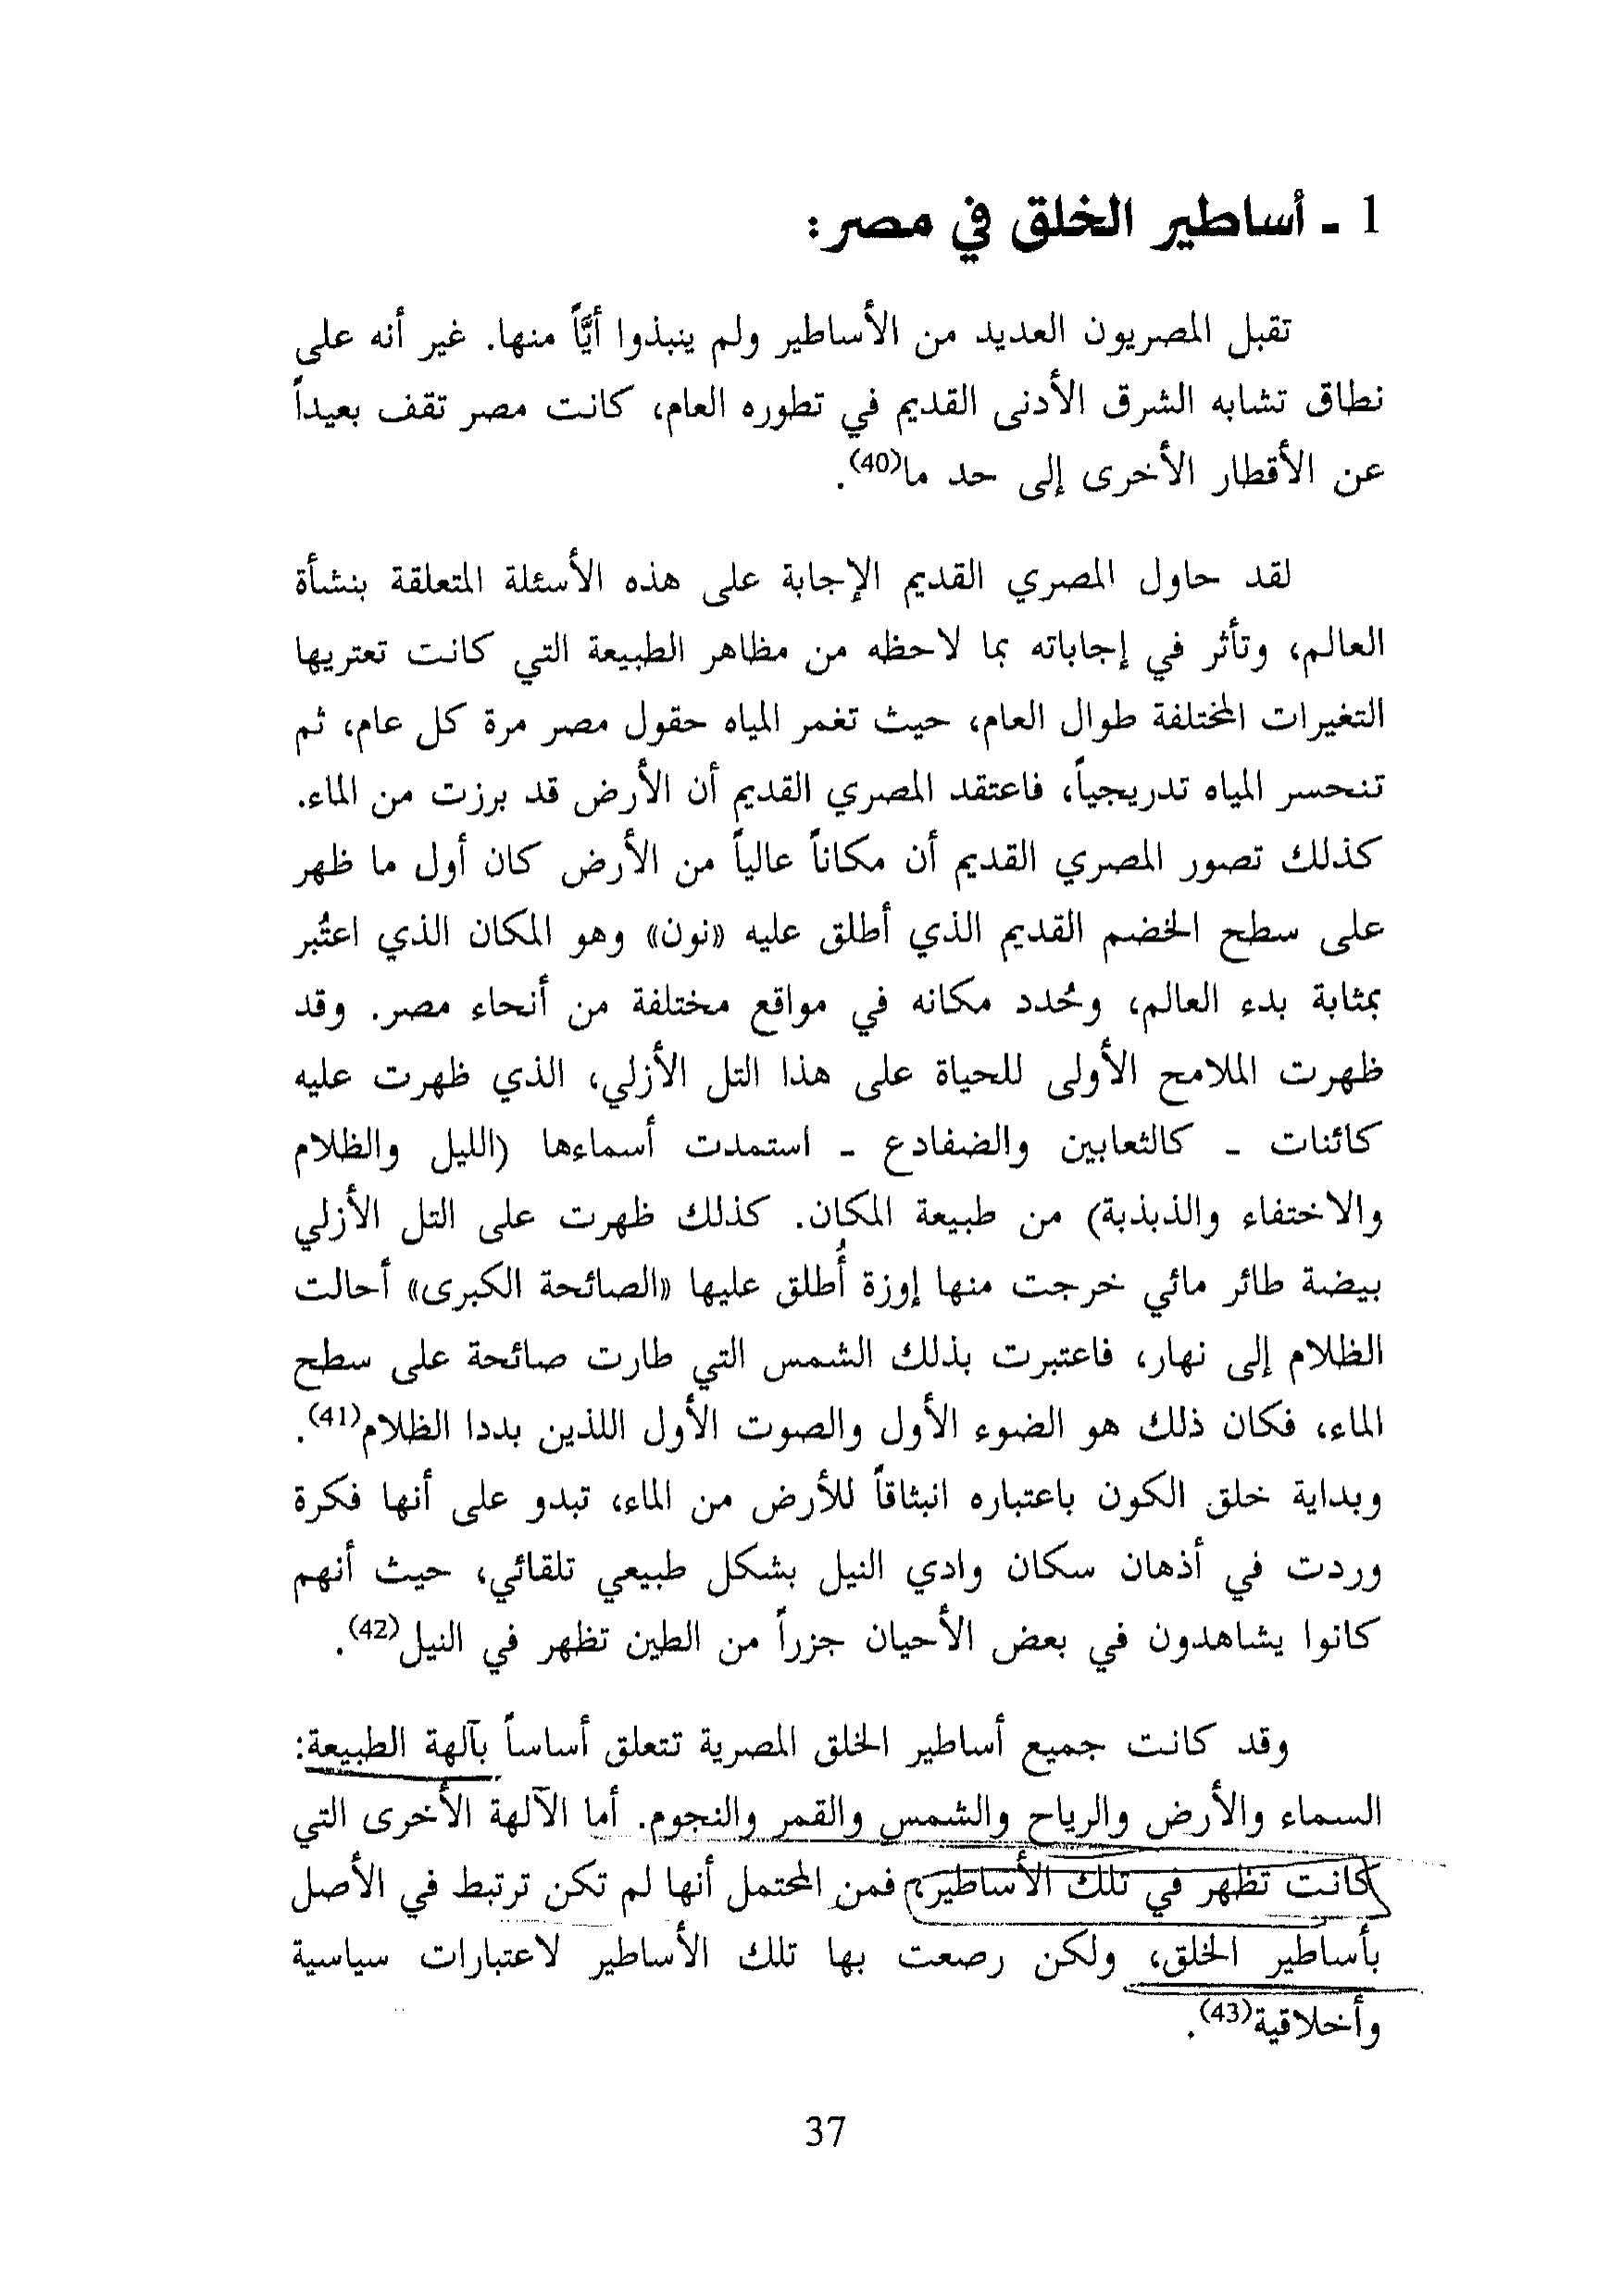 1 ـ أساطير الخلق في مصر:
تقبل المصريون العديد من الأساطير ولم ينبذوا أيّاً منها. غير أنه على
نطاق تشابه الشرق الأدنى القديم في تطوره العام، كانت مصر تقف بعيداً
عن الأقطار الأخرى إلى حد ما(40).
لقد حاول المصري القديم الإجابة على هذه الأسئلة المتعلقة بنشأة
العالم، وتأثر في إجاباته بما لاحظه من مظاهر الطبيعة التي كانت تعتريها
التغيرات المختلفة طوال العام، حيث تغمر المياه حقول مصر مرة كل عام، ثم
تنحسر المياه تدريجياً، فاعتقد المصري القديم أن الأرض قد برزت من الماء.
كذلك تصور المصري القديم أن مكاناً عالياً من الأرض كان أول ما ظهر
على سطح الخضم القديم الذي أطلق عليه «نون» وهو المكان الذي اعتُبر
بمثابة بدء العالم، وحُدد مكانه في مواقع مختلفة من أنحاء مصر. وقد
ظهرت الملامح الأولى للحياة على هذا التل الأزلي، الذي ظهرت عليه
كائنات ـ كالثعابين والضفادع ـ استمدت أسماءها (الليل والظلام
والاختفاء والذبذبة) من طبيعة المكان. كذلك ظهرت على التل الأزلي
بيضة طائر مائي خرجت منها إوزة أُطلق عليها «الصائحة الكبرى» أحالت
الظلام إلى نهار، فاعتبرت بذلك الشمس التي طارت صائحة على سطح
الماء، فكان ذلك هو الضوء الأول والصوت الأول اللذين بددا الظلام(41).
وبداية خلق الكون باعتباره انبثاقاً للأرض من الماء، تبدو على أنها فكرة
وردت في أذهان سكان وادي النيل بشكل طبيعي تلقائي، حيث أنهم
كانوا يشاهدون في بعض الأحيان جزراً من الطين تظهر في النيل(42).
وقد كانت جميع أساطير الخلق المصرية تتعلق أساساً بآلهة الطبيعة:
السماء والأرض والرياح والشمس والقمر والنجوم. أما الآلهة الأخرى التي
كانت تظهر في تلك الأساطير، فمن المحتمل أنها لم تكن ترتبط في الأصل
بأساطير الخلق، ولكن رصعت بها تلك الأساطير لاعتبارات سياسية
وأخلاقية(43).
37